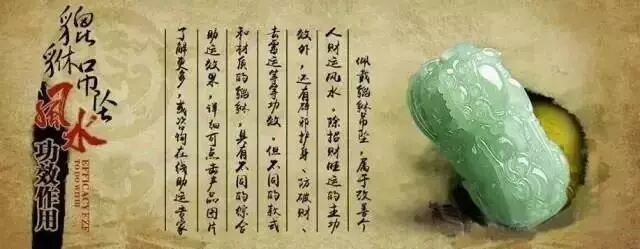 貔貅吊坠
風水
功效作用
TO DO WITH
佩戴貔貅吊坠，属于改善个
人财运风水，除招财旺运的主功
效外，还有辟邪护身、防破财、
去霉运等等功效，但不同的款式
和材质的貔貅，具有不同的综合
助运效果，详细可点击产品图片
了解更多，或咨询在线助运专家